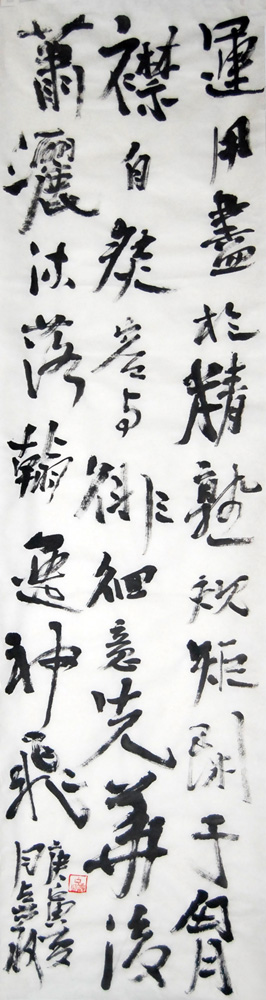 運用盡於精熟規矩闇于胷
襟自然容与徘徊意先筆後
蕭灑流落翰逸神飛
庚寅